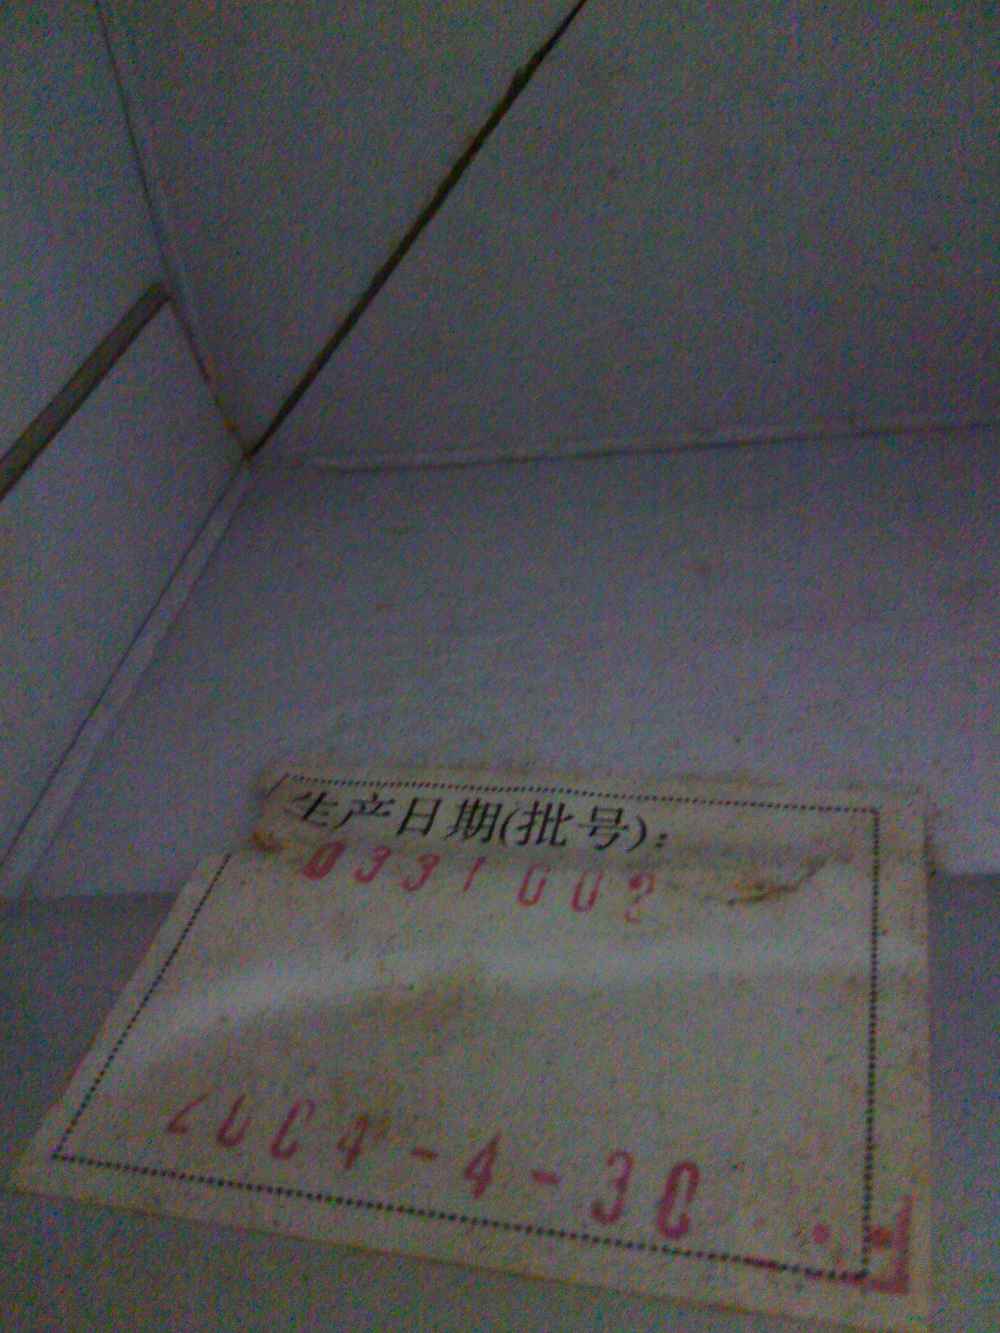 生产日期(批号):
0331002
2004-4-30